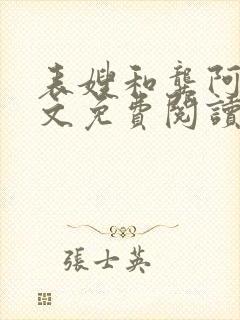 表嫂和龚阿
文免費閱讀
張士英